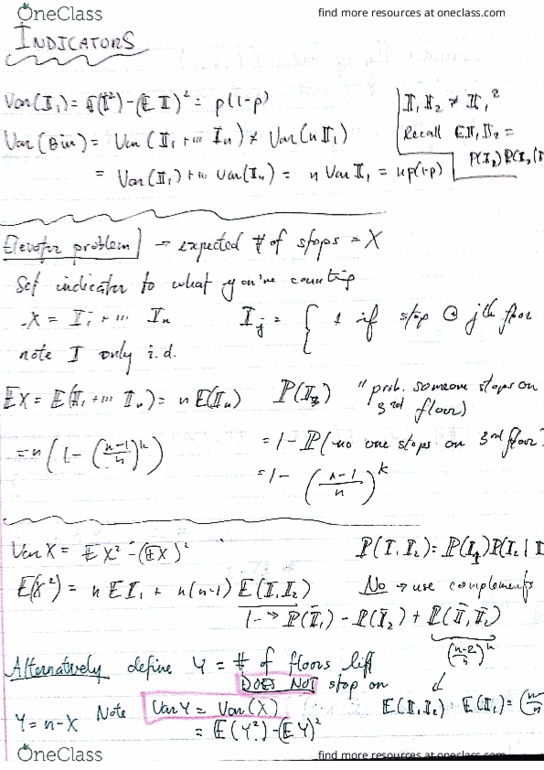 OneClass
find more resources at oneclass.com
INDICATORS
Var(𝕀₁) = 𝔼(𝕀²) - (𝔼 𝕀)² = p(1-p)
𝕀₁𝕀₂ ≠ 𝕀₁²
Var(Bin) = Var(𝕀₁ + ... 𝕀ₙ) ≠ Var(n𝕀₁)
Recall 𝔼𝕀₁𝕀₂ =
= Var(𝕀₁) + ... Var(𝕀ₙ) = n Var 𝕀₁ = np(1-p)
Elevator problem → expected # of stops = X
Set indicator to what you're counting
X = 𝕀₁ + ... 𝕀ₙ
𝕀ⱼ = { 1 if stop @ jth floor
note 𝕀 only i.d.
𝔼X = 𝔼(𝕀₁ + ... 𝕀ₙ) = n𝔼(𝕀ₙ)
ℙ(𝕀₃) "prob. someone stops on
3rd floor)
= n(1 - ((n-1)/n)^k)
= 1 - ℙ(no one stops on 3rd floor)
= 1 - ((n-1)/n)^k
Var X = 𝔼X² - (𝔼X)²
𝔼(X²) = n𝔼𝕀₁ + n(n-1) 𝔼(𝕀₁𝕀₂)
No → use complements
1 - ℙ(𝕀̄₁) - ℙ(𝕀̄₂) + ℙ(𝕀̄₁𝕀̄₂)
Alternatively define Y = # of floors lift
DOES NOT stop on
Y = n-X Note Var Y = Var(X)
= 𝔼(Y²) - (𝔼Y)²
OneClass
find more resources at oneclass.com